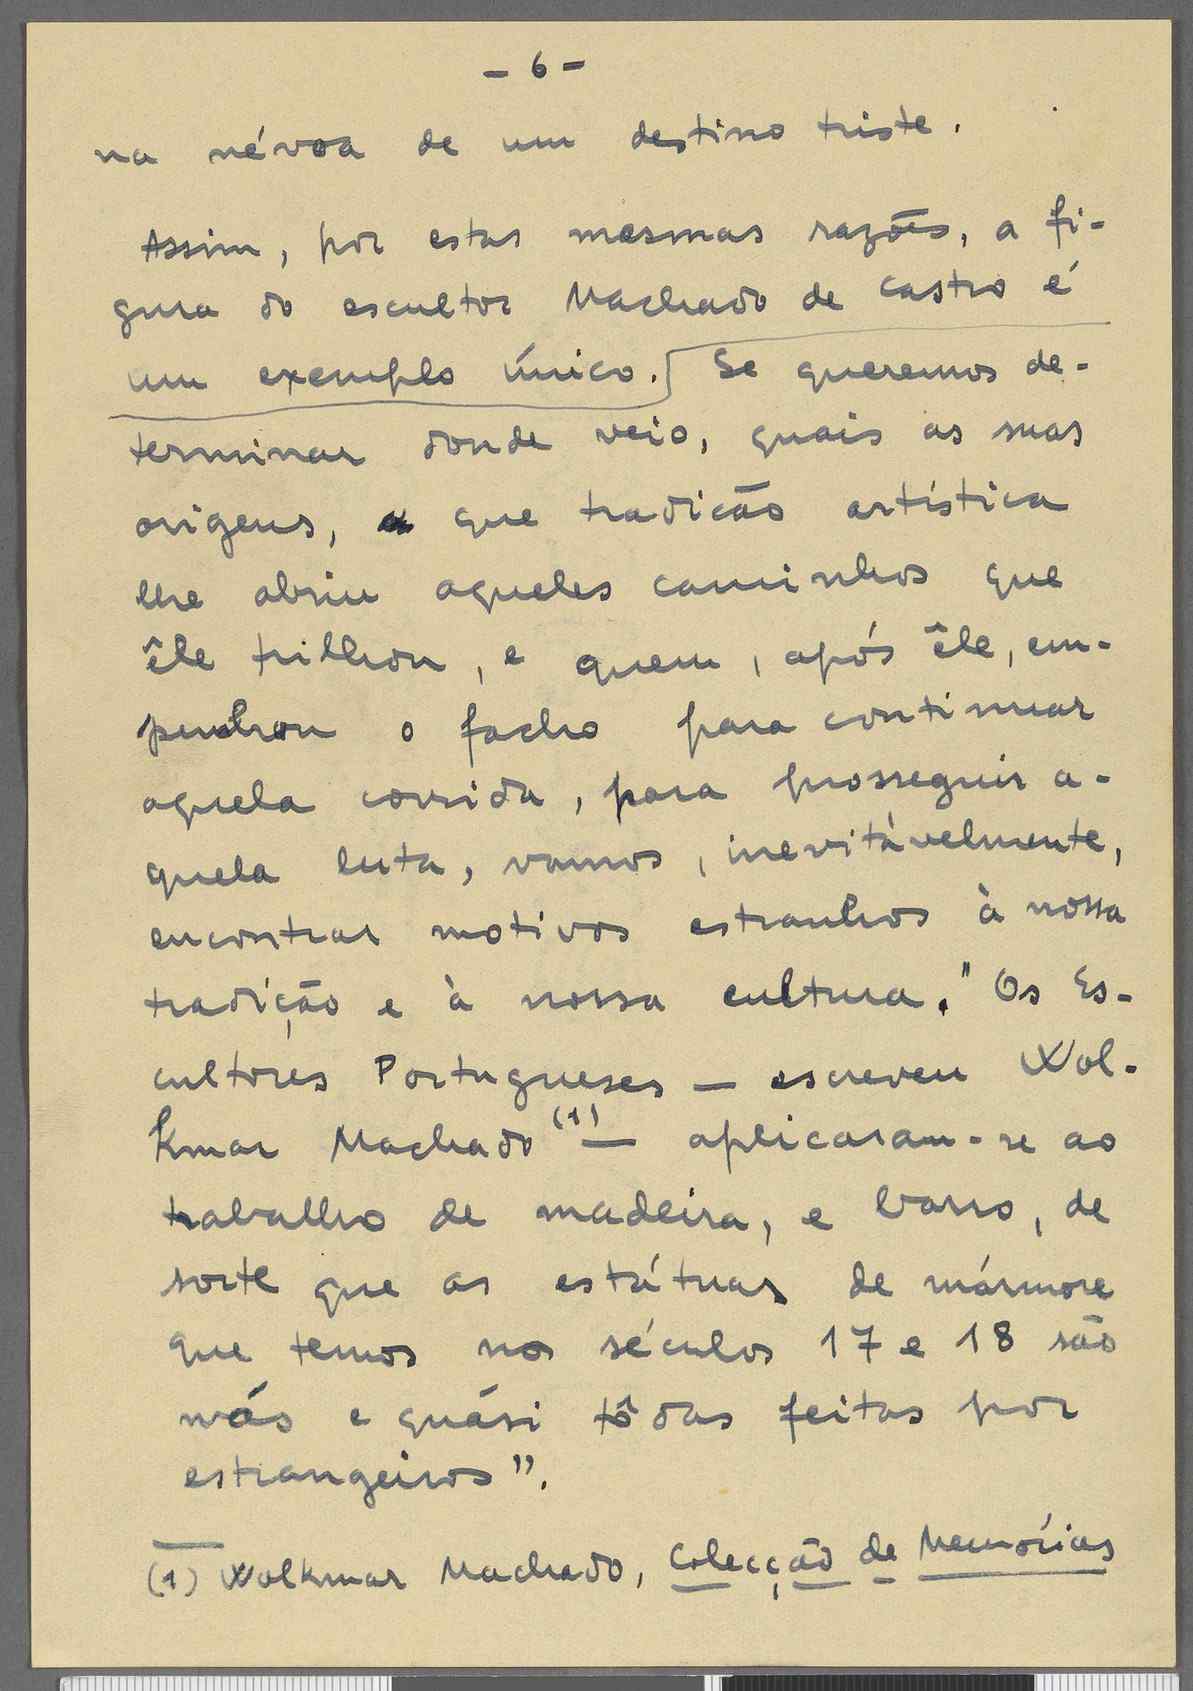 - 6 -
na névoa de um destino triste.
Assim, por estas mesmas razões, a fi-
gura do escultor Machado de Castro é
um exemplo único. Se queremos de-
terminar donde veio, quais as suas
origens, a que tradicão artística
lhe abriu aqueles caminhos que
êle trilhou, e quem, após êle, em-
punhou o facho para continuar
aquela corrida, para prosseguir a-
quela luta, vamos, inevitávelmente,
encontrar motivos estranhos à nossa
tradição e à nossa cultura. "Os Es-
cultores Portugueses — escreveu Wol-
kmar Machado (1) — aplicaram-se ao
trabalho de madeira, e barro, de
sorte que as estátuas de mármore
que temos nos séculos 17 e 18 são
más e quási tôdas feitas por
estrangeiros".
(1) Wolkmar Machado, Colecção de Memórias